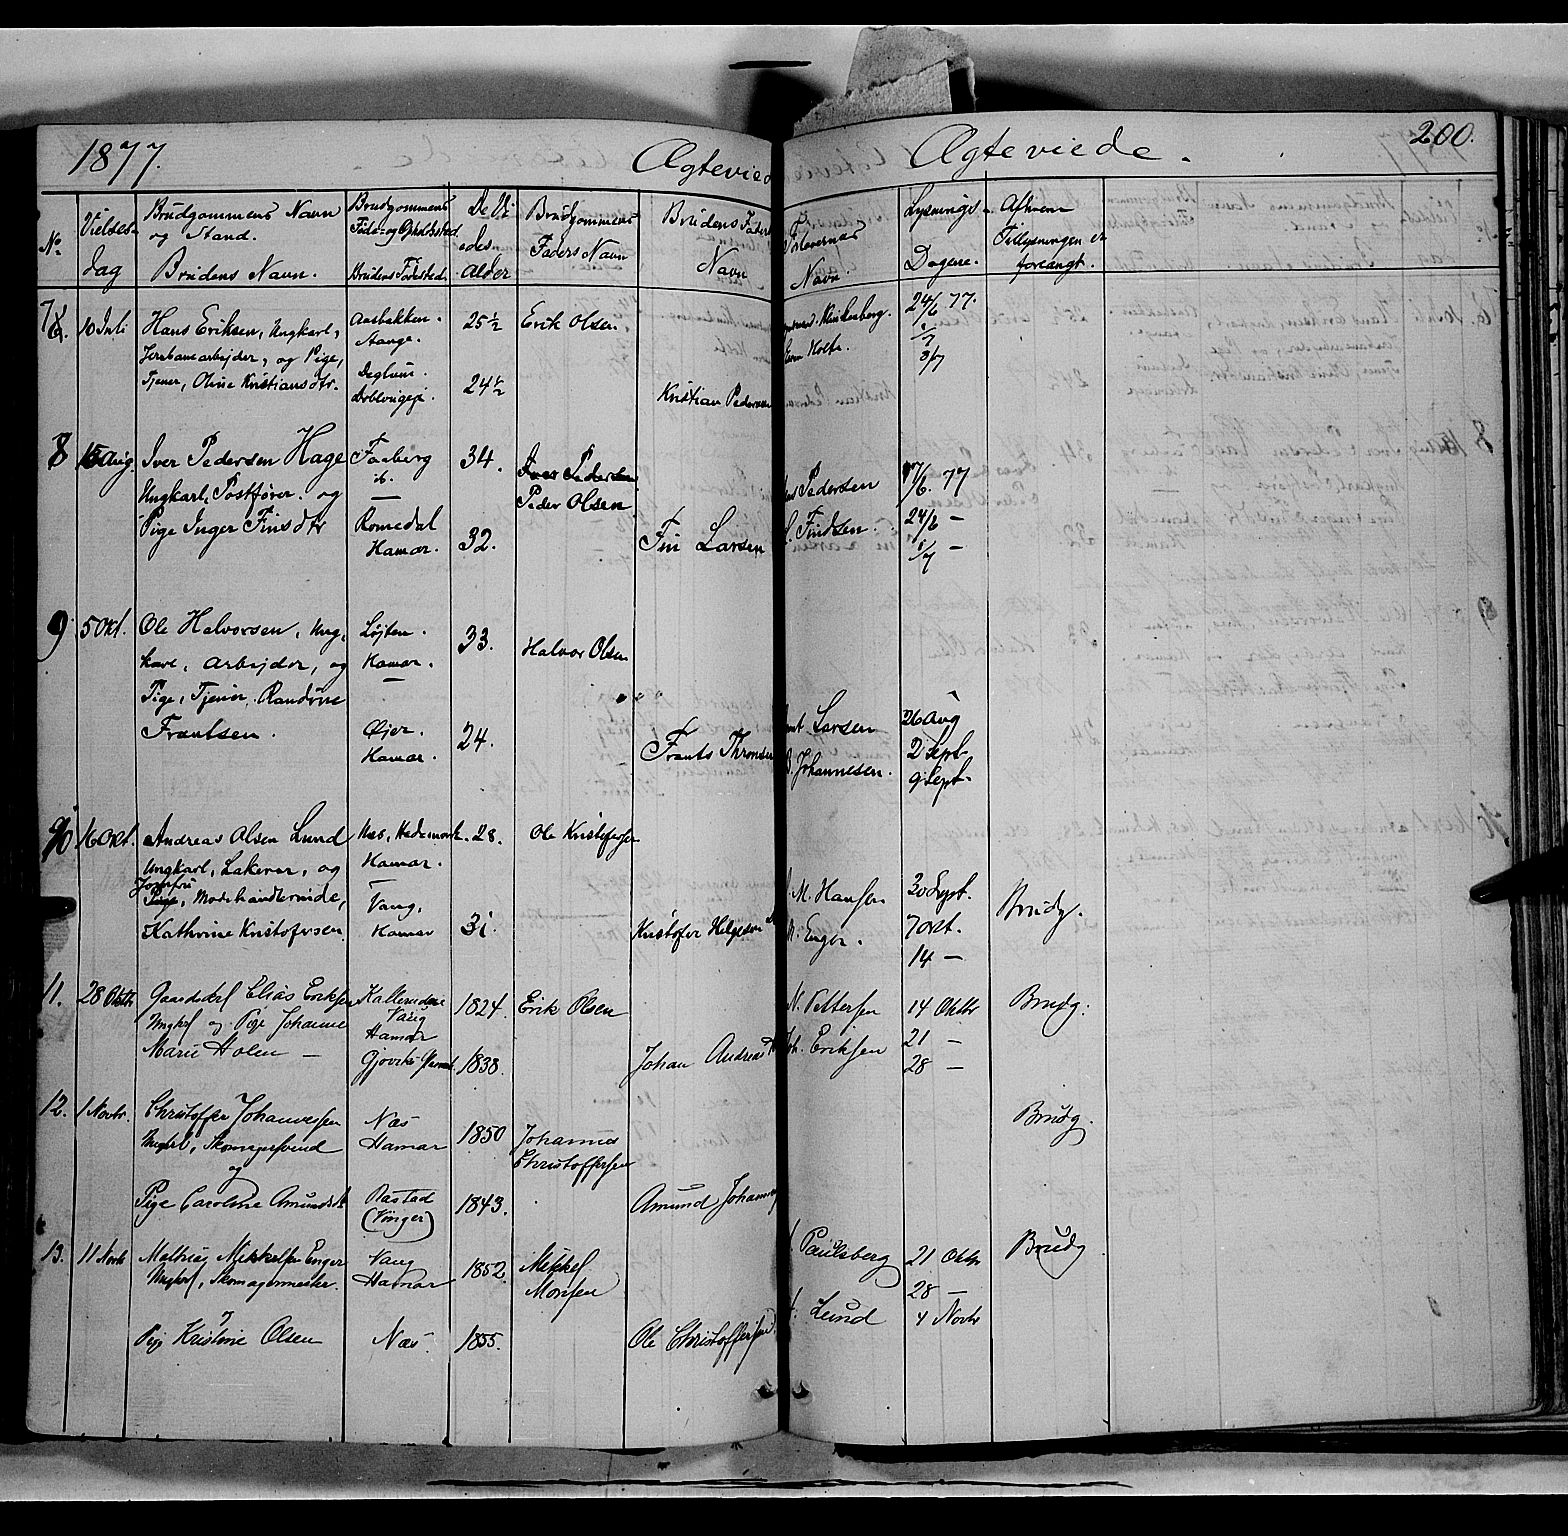 1877.
Ægteviede
Ægteviede.
200.
No
Vielses-
dag
Brudgommens Navn
og Stand.
Brudens Navn.
Brudgommens
Føde- og Opholdssted
Brudens Fødested
De Vi-
edes
Alder
Brudgommens
Faders Navn
Brudens Faders
Navn
Forlovernes
Navn.
Lysnings-
Dagene.
Af hvem
Tillysningen er
forlangt.
7
10 Juli
Hans Eriksen, Ungkarl,
Jernbanearbejder, og Pige,
Tjener, Oline Kristiansdtr.
Aasbakken.
Stange.
25½
24½
Erik Olsen
Kristian Pedersen
Klinkenberg.
Holte.
24/6 77.
1/7
8/7
8
15 Aug.
Iver Pedersen Hage
Ungkarl, Postfører. og
Pige Inger Finsdtr
Faaberg
ib.
Romedal
Hamar.
34.
32.
Iver Pedersen
Peder Olsen
Fin Larsen
Pedersen
Findsen.
17/6. 77
24/6 —
1/7 —
9
5 Okt.
Ole Halvorsen, Ung-
karl, Arbejder, og
Pige, Tjener, Randine
Frantsen.
Løjten.
Hamar.
—
Øjer.
Hamar.
33.
24.
Halvor Olsen
Frants Thronsen
Larsen
Johannesen.
26 Aug
2 Sept.
9 Sept.
10
16 Okt.
Andreas Olsen Lund
Ungkarl, Lakerer, og
Jomfru
Pige, Modehandlerinde,
Kathrine Kristofersen
Næs, Hedemark.
Hamar.
Vang,
Hamar
28.
31.
Ole Kristofersen
Kristofer Helgesen
M. Hansen
Enger.
30 Sept.
7 okt.
14 —
Brudg.
11.
28 Oktbr
Gaardskrl Elias Eriksen
Ungkrl og Pige Johanne
Marie Holen —
Vang
Hamar
1824.
1838.
Erik Olsen
Johan Andreas
Pettersen
Eriksen
14 Oktbr
21 —
28 —
Brudg.
12.
1 Novbr.
Christoffer Johannessen
Ungkrl, Skomagersvend
og
Pige Caroline Amundsdtr
Næs
Hamar
Aastad
(Vinger)
1850
1843.
Johannes
Christoffersen
Amund Johannes
Brudg.
13.
11 Novbr
Mathias Mikkelsen Enger
Ungkrl, Skomagermester.
Pige Kristine Olsen
Vang
Hamar
Næs.
1852.
1855.
Mikkel
Monsen
Ole Christoffersen
Paulsberg
Lund
21 Oktbr
28 —
4 Novbr
Brudg